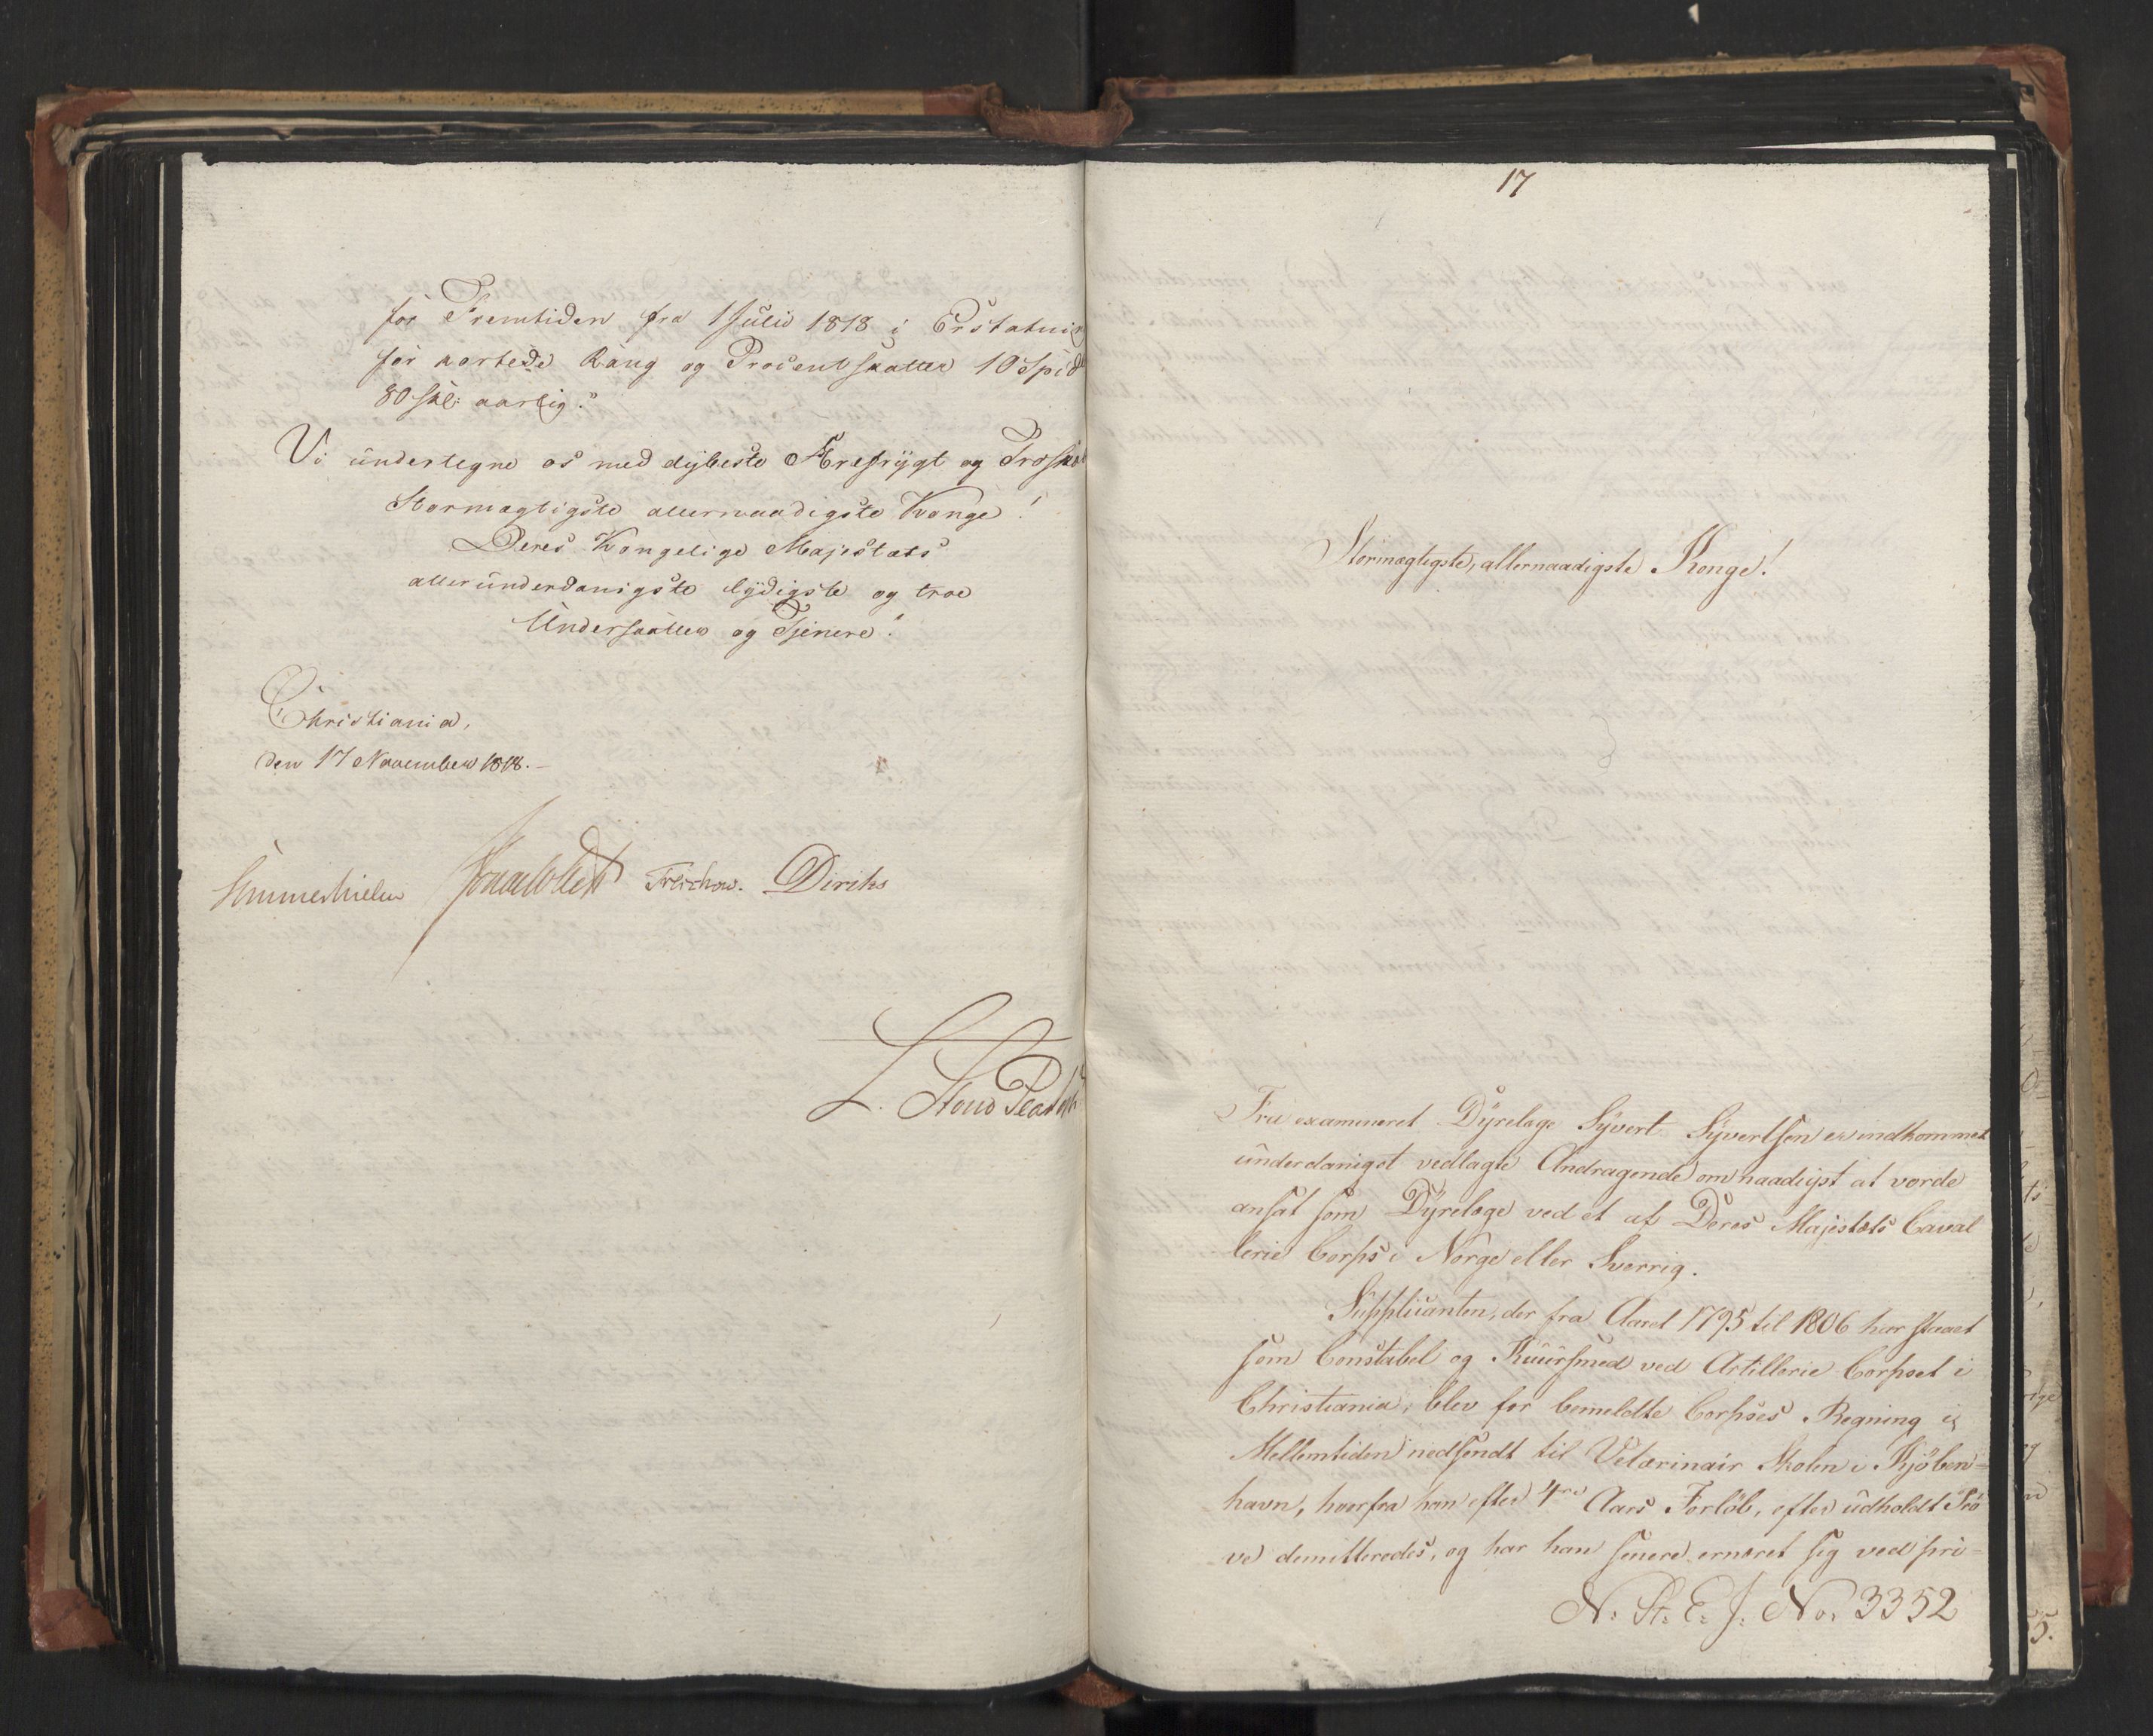 for Fremtiden fra 1 Julii 1818 i Erstatning
for kortede Rang og Procentskatter 10 Spd
80 skl: aarlig.
Vi undertegne os med dybeste Ærefrygt og Troskab
Stormægtigste allernaadigste Konge!
Deres Kongelige Majestæts
allerunderdanigste lydigste og troe
Undersaatter og Tjenere.
Christiania,
den 17 November 1818.-
Sommerhielm Jonas Collett Treschow. Diriks
L. Stoud Platou
17
Stormægtigste, allernaadigste Konge!
Fra examineret Dyrelæge Syvert Syvertsen er indkommet
underdanigst vedlagte Andragende om naadigst at vorde
ansat som Dyrelæge ved et af Deres Majestæts Caval
lerie Corps i Norge eller Sverrig.
Supplicanten, der fra Aaret 1795 til 1806 har staaet
som Constabel og Kuursmed ved Artillerie Corpset i
Christiania, blev for bemeldte Corpses Regning i
Mellemtiden nedsendt til Veterinair Skolen i Kjöben=
havn, hvorfra han efter 4re Aars Forlöb, efter udholdt Prö
ve demitteredes, og har han senere ernæret sig ved pri-
N. St. E. J. No. 3352